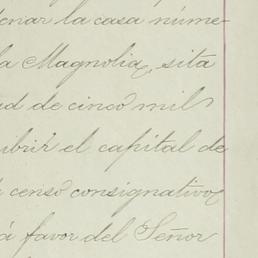 enar la casa núme-
la Magnolia, sita
ad de cinco mil
ibir el capital de
censo consignativo
á favor del Señor